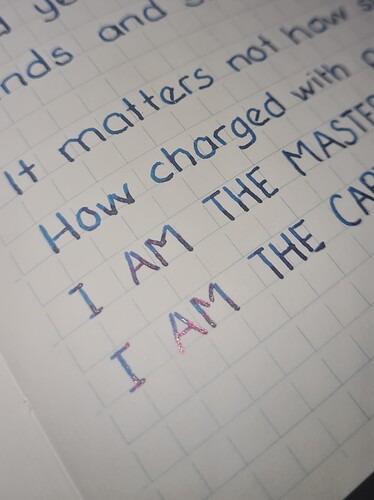 nds and
It matters not how
How charged with
I AM THE MASTE
I AM THE CAP